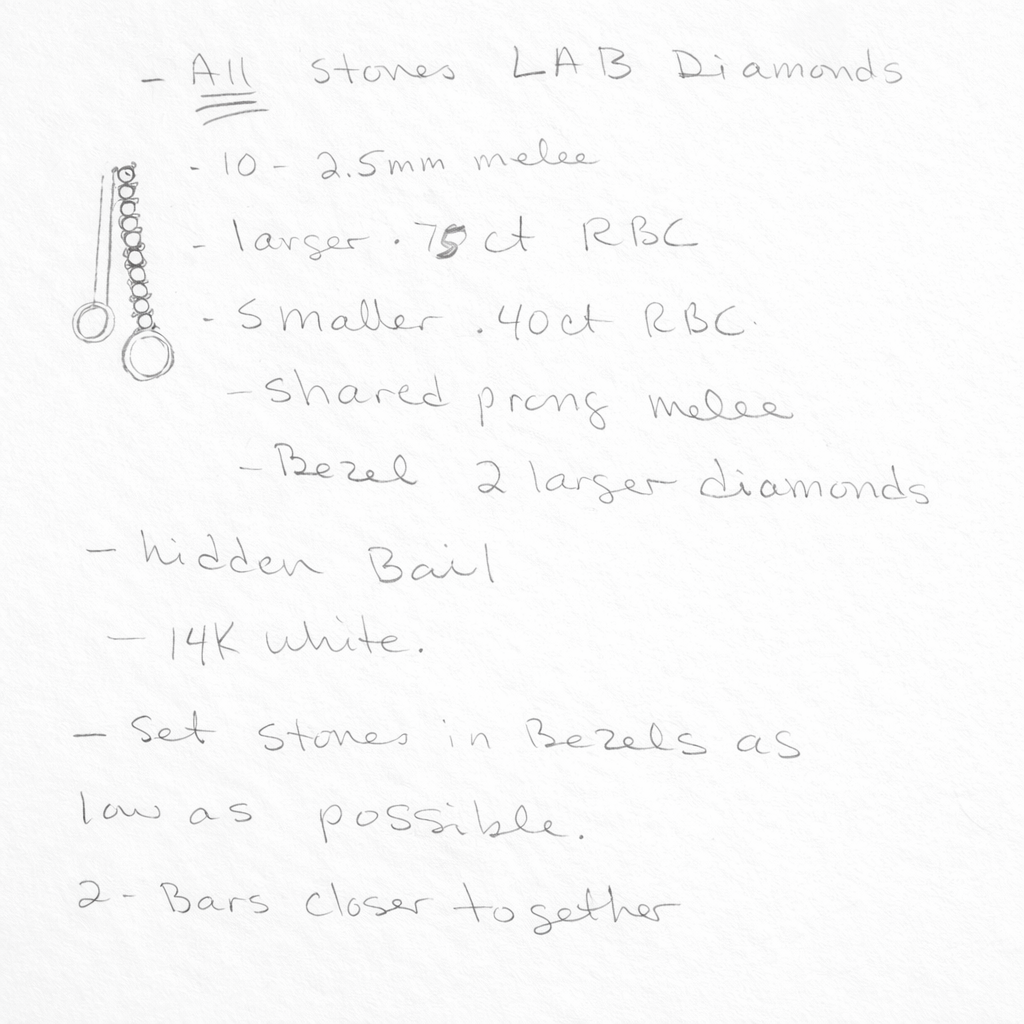 - All stones LAB Diamonds
- 10 - 2.5mm melee
- larger .75 ct RBC
- Smaller .40ct RBC.
- shared prong melee
- Bezel 2 larger diamonds
- hidden Bail
- 14K white.
- Set stones in Bezels as
low as possible.
2 - Bars closer together